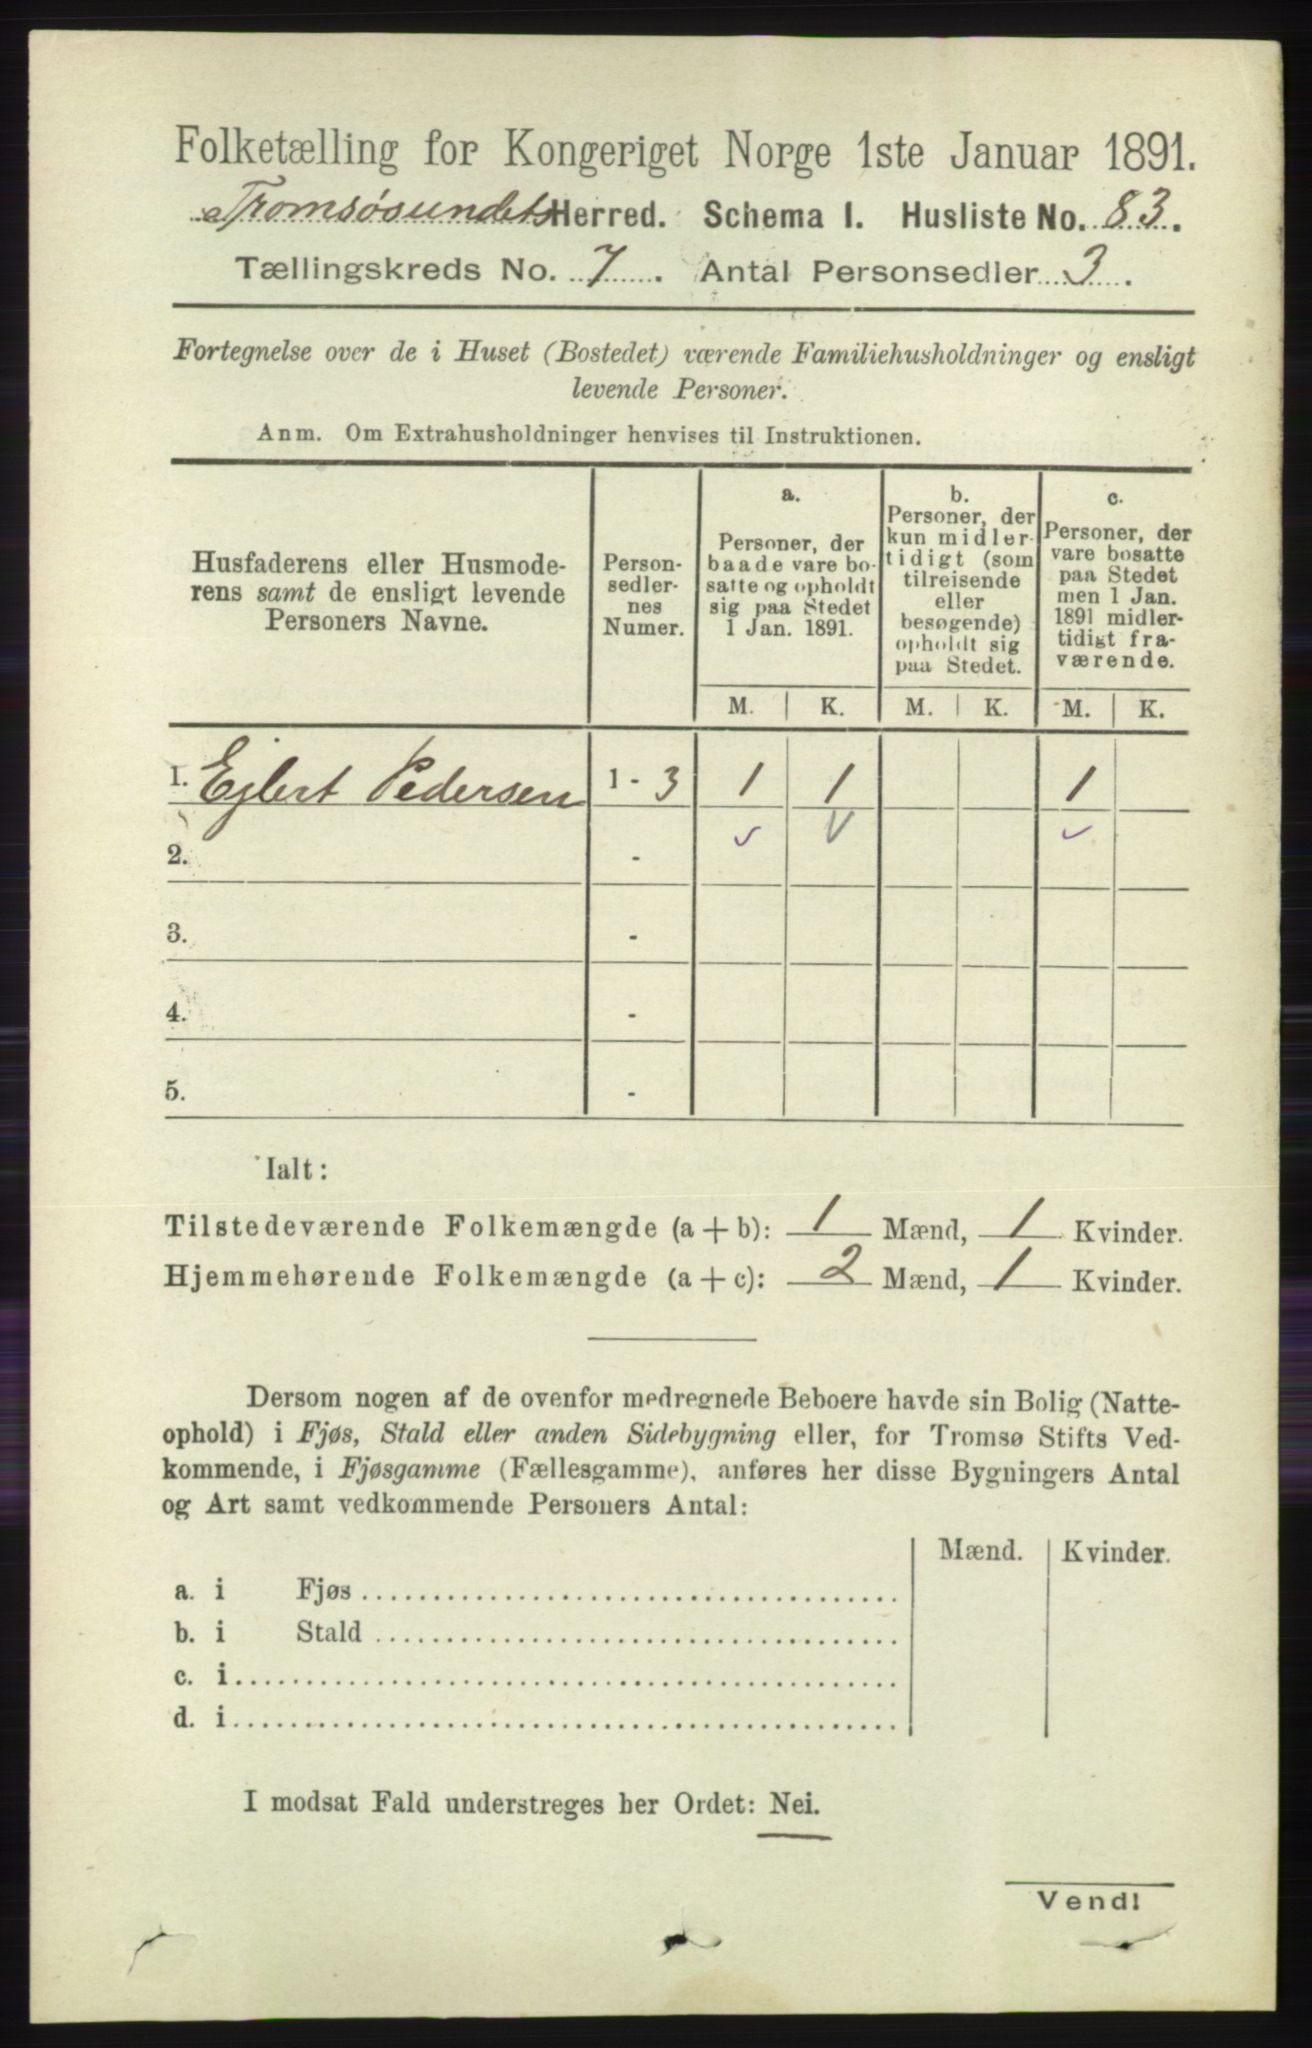 Folketælling for Kongeriget Norge 1ste Januar 1891.
Tromsøsundets Herred. Schema I. Husliste No. 83.
Tællingskreds No. 7. Antal Personsedler 3.
Fortegnelse over de i Huset (Bostedet) værende Familiehusholdninger og ensligt
levende Personer.
Anm. Om Extrahusholdninger henvises til Instruktionen.
Husfaderens eller Husmode-
rens samt de ensligt levende
Personers Navne.
Person-
sedler-
nes
Numer.
a.
Personer, der
baade vare bo-
satte og opholdt
sig paa Stedet
1 Jan. 1891.
b.
Personer, der
kun midler-
tidigt (som
tilreisende
eller
besøgende)
opholdt sig
paa Stedet.
c.
Personer, der
vare bosatte
paa Stedet
men 1 Jan.
1891 midler-
tidigt fra-
værende.
M. K. M. K. M. K.
1. Ejlert Pedersen 1 - 3 1 1 1
2. -
3. -
4. -
5. -
Ialt:
Tilstedeværende Folkemængde (a + b): 1 Mænd, 1 Kvinder.
Hjemmehørende Folkemængde (a + c): 2 Mænd, 1 Kvinder.
Dersom nogen af de ovenfor medregnede Beboere havde sin Bolig (Natte-
ophold) i Fjøs, Stald eller anden Sidebygning eller, for Tromsø Stifts Ved-
kommende, i Fjøsgamme (Fællesgamme), anføres her disse Bygningers Antal
og Art samt vedkommende Personers Antal:
Mænd. Kvinder.
a. i Fjøs
b. i Stald
c. i
d. i
I modsat Fald understreges her Ordet: Nei.
Vend!